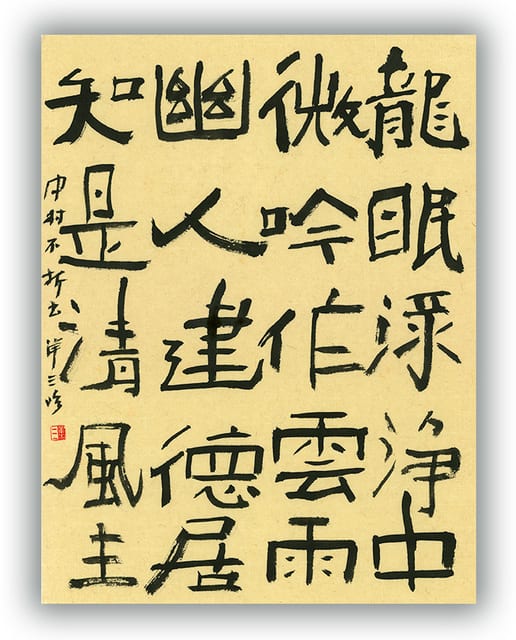 龍眠渌淨中
微吟作雲雨
幽人建德居
知是清風主
中村不折书 岸三临